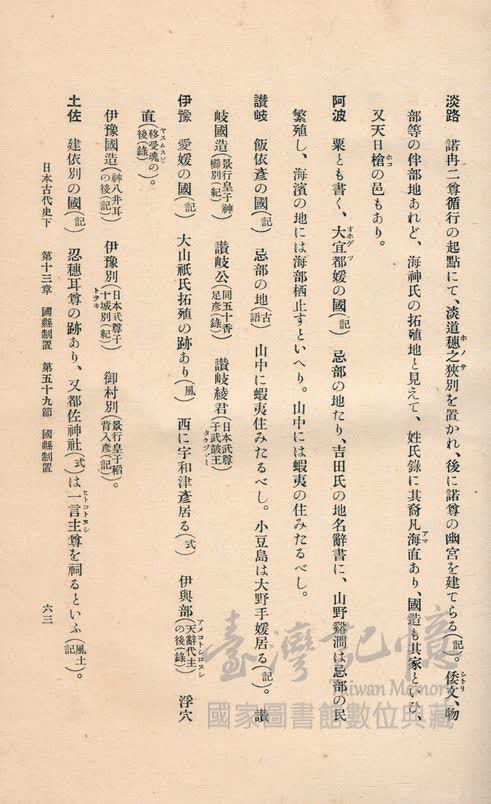 淡路　諾冉二尊循行の起點にて、淡道穗之狹別を置かれ、後に諾尊の幽宮を建てらる(記)。倭文、物
部等の伴部地あれど、海神氏の拓殖地と見えて、姓氏錄に其裔凡海直あり、國造も其家といひ、
又天日槍の邑もあり。
阿波　粟とも書く、大宜都媛の國(記)　忌部の地たり、吉田氏の地名辭書に、山野谿澗は忌部の民
繁殖し、海濱の地には海部栖止すといへり。山中には蝦夷の住みたるべし。
讃岐　飯依彥の國(記)　忌部の地(古語)　山中に蝦夷住みたるべし。小豆島は大野手媛居る(記)。讃
岐國造(景行皇子神櫛別(紀)　讃岐公(同五十香足彥(錄)　讃岐綾君(日本武尊子武皷王
伊豫　愛媛の國(記)　大山祇氏拓殖の跡あり(風)　西に宇和津彥居る(式)　伊與部(天辭代主の後(錄)　浮穴
直(移愛魂の後(錄)。
伊豫國造(神八井耳の後(記)　伊豫別(日本武尊子十城別(紀)　御村別(景行皇子稻背入彥(記)。
土佐　建依別の國(記)　忍穗耳尊の跡あり、又都佐神社(式)は一言主尊を祠るといふ(風土記)。
日本古代史下　第十三章　國縣制置　第五十九節　國縣制置　六三
臺灣記憶
Taiwan Memory
國家圖書館數位典藏